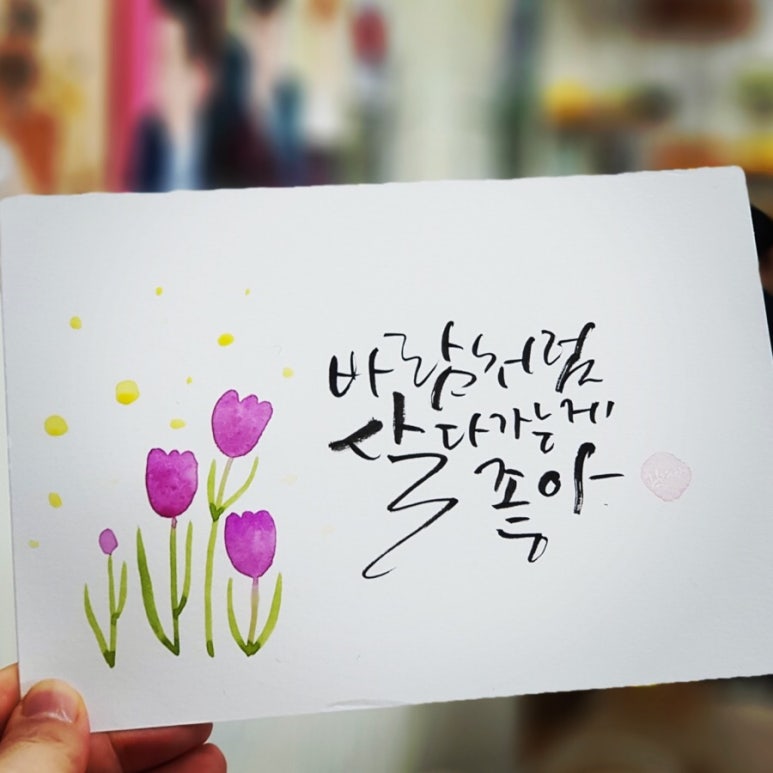 바람처럼
살다가는게
좋아